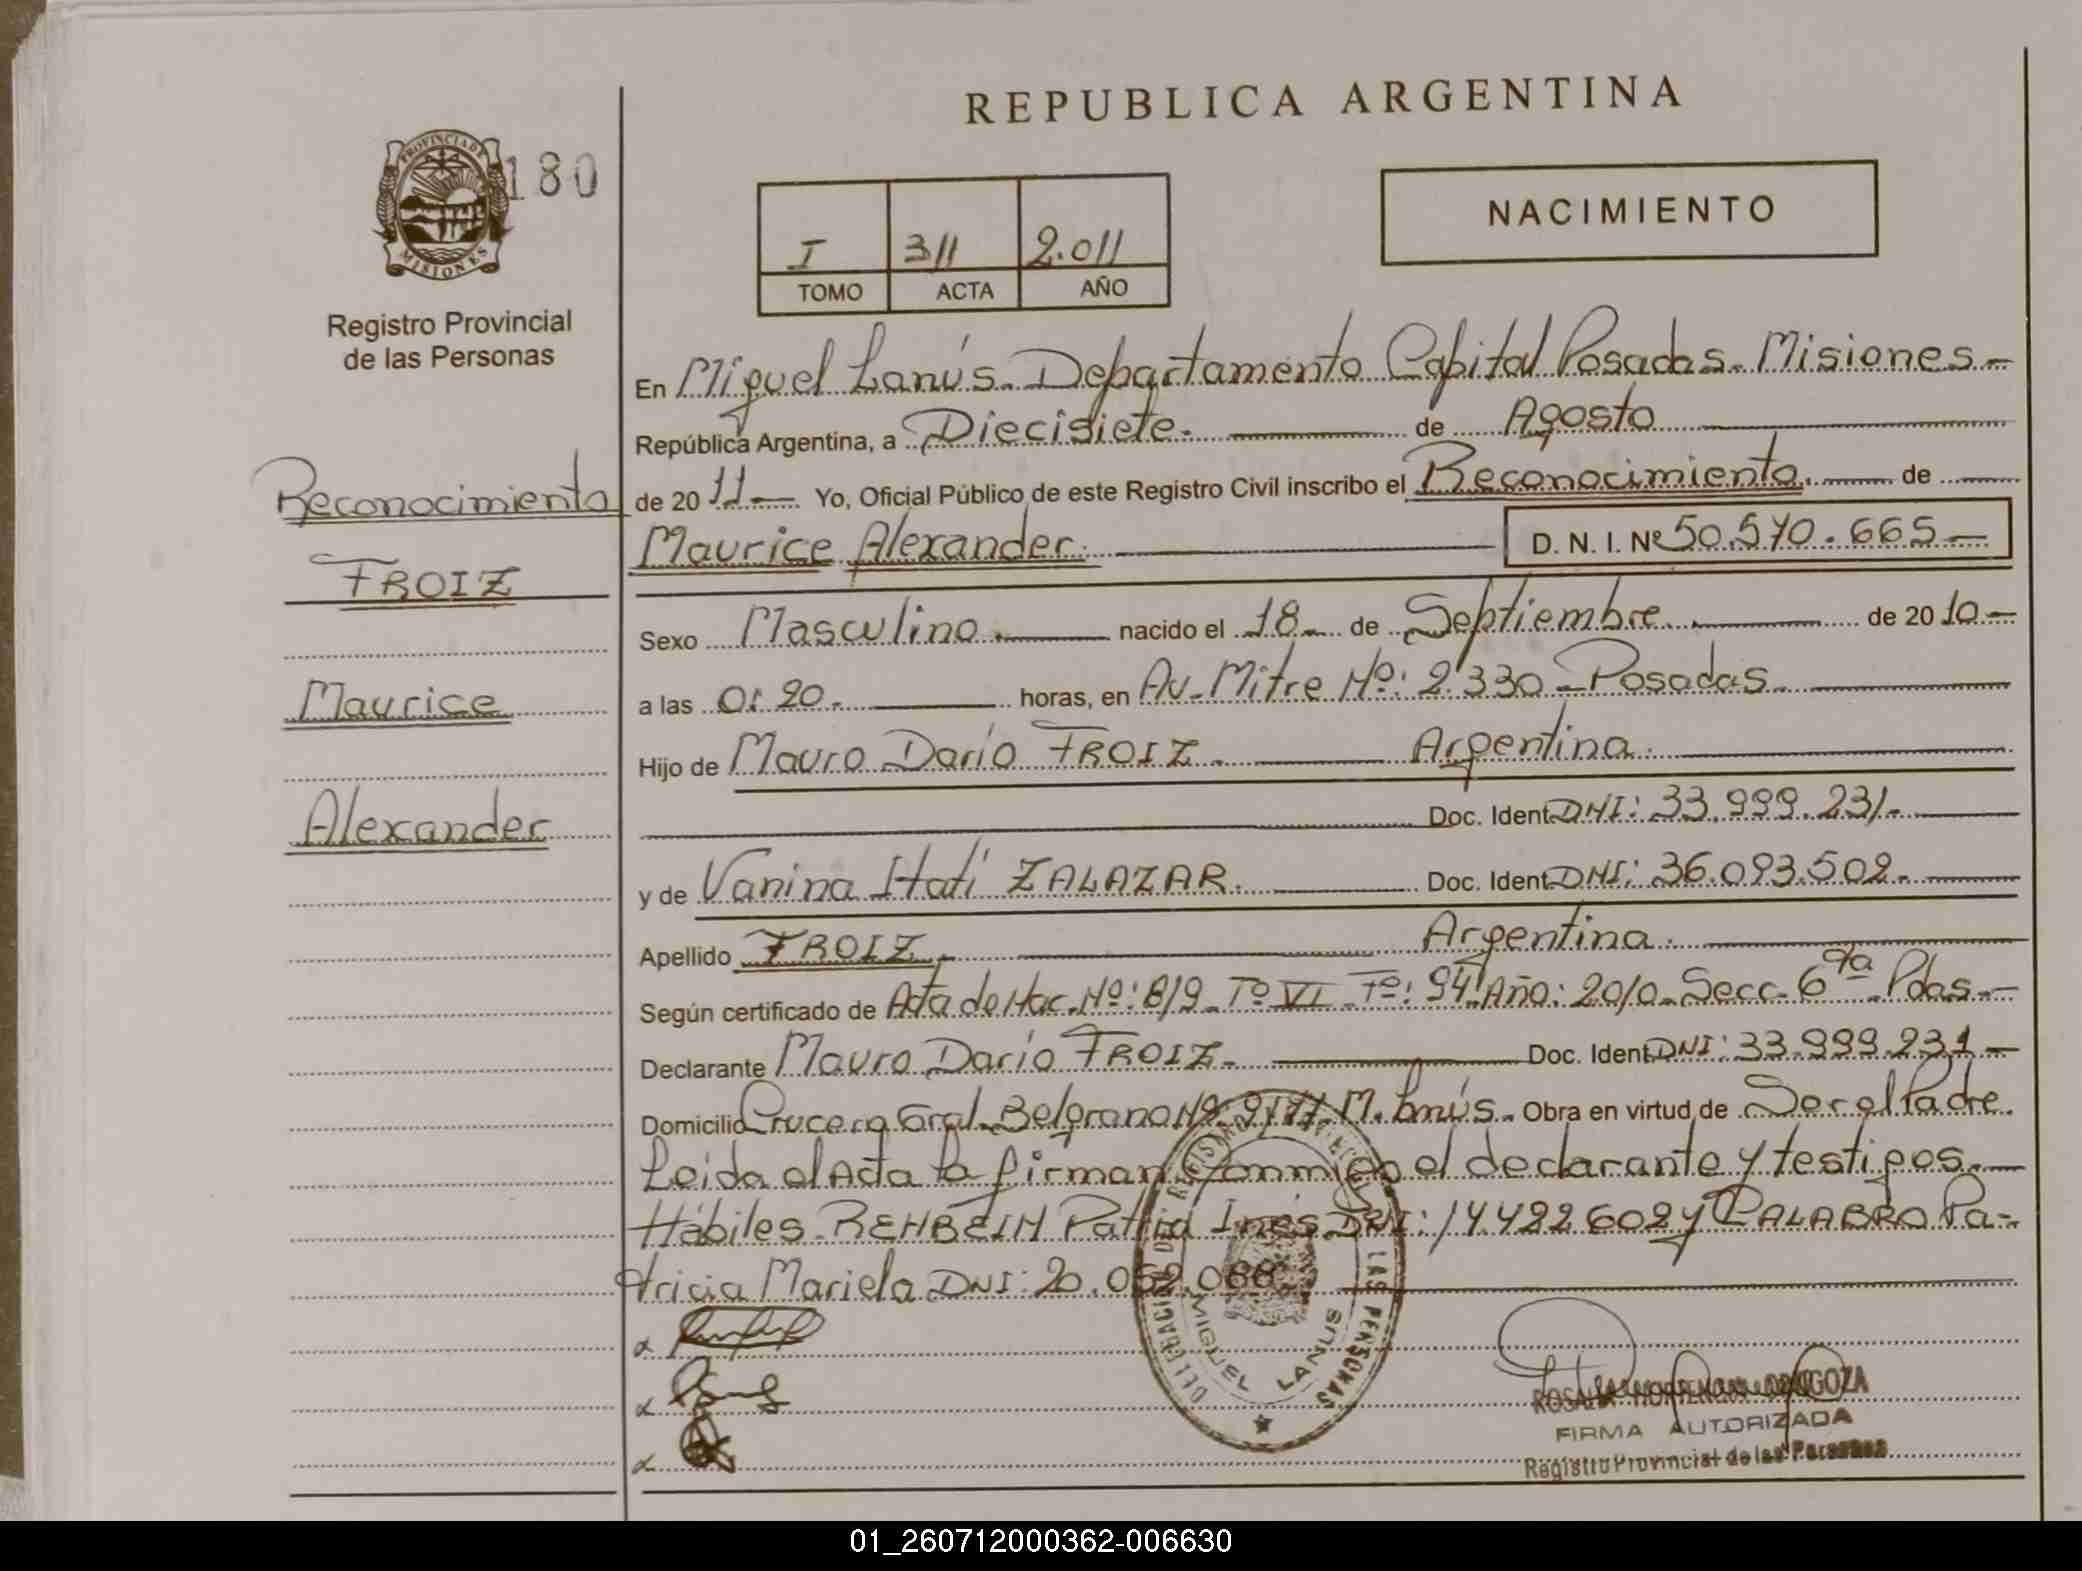 REPUBLICA ARGENTINA
PROVINCIA DE
MISIONES
180
Registro Provincial
de las Personas
I 311 2.011
TOMO ACTA AÑO
NACIMIENTO
En Miguel Lanús. Departamento Capital Posadas. Misiones
República Argentina, a Diecisiete. de Agosto
de 2011 Yo, Oficial Público de este Registro Civil inscribo el Reconocimiento. de
Maurice Alexander. D. N. I. Nº 50.570.665
Reconocimiento
FROIZ
Maurice
Alexander
Sexo Masculino. nacido el 18 de Septiembre. de 2010
a las 0:20. horas, en Av. Mitre Nº: 2330 Posadas.
Hijo de Mauro Darío FROIZ. Argentina.
Doc. Ident DNI: 33.999.231.
y de Vanina Itatí ZALAZAR. Doc. Ident DNI: 36.093.502.
Apellido FROIZ. Argentina.
Según certificado de Acta de Nac. Nº: 819 Tº VI Fº: 94 Año: 2010. Secc. 6ta Pdas.
Declarante Mauro Darío FROIZ. Doc. Ident DNI: 33.999.231
Domicilio Crucero Gral. Belgrano Nº M. Lanús. Obra en virtud de Ser el Padre.
Leida el Acta la firman conmigo el declarante y testigos
Hábiles REHBEIN Patricia Inés DNI: 14.422.602 y CALABRO Pa-
tricia Mariela DNI: 20.
DELEGACION
LAS PERSONAS
MIGUEL LANUS
FIRMA AUTORIZADA
Registro Provincial de las Personas
01_260712000362-006630